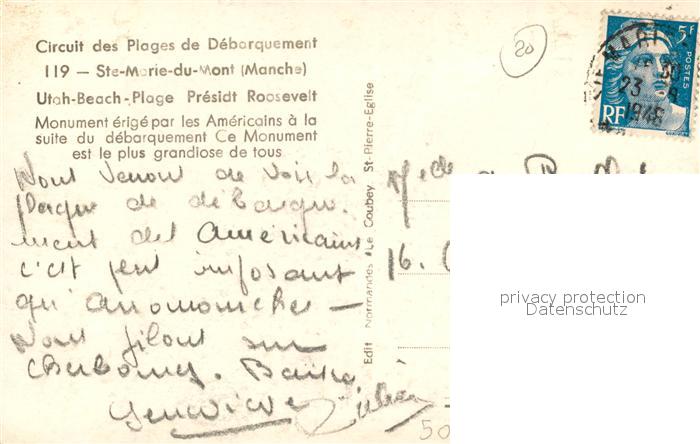 Circuit des Plages de Débarquement
119 — Ste-Marie-du-Mont (Manche)
Utah-Beach-Plage Présidt Roosevelt
Monument érigé par les Américains à la
suite du débarquement Ce Monument
est le plus grandiose de tous
Nous venons de voir la
plage de débarque-
ment des Américains
c'est peu imposant
qu'arromanches —
Nous filons sur
Cherbourg. Baisers
Geneviève
Edit Normandes Le Goubey St-Pierre-Eglise
20
5F
POSTES
RF
23
1948
16.
privacy protection
Datenschutz
50